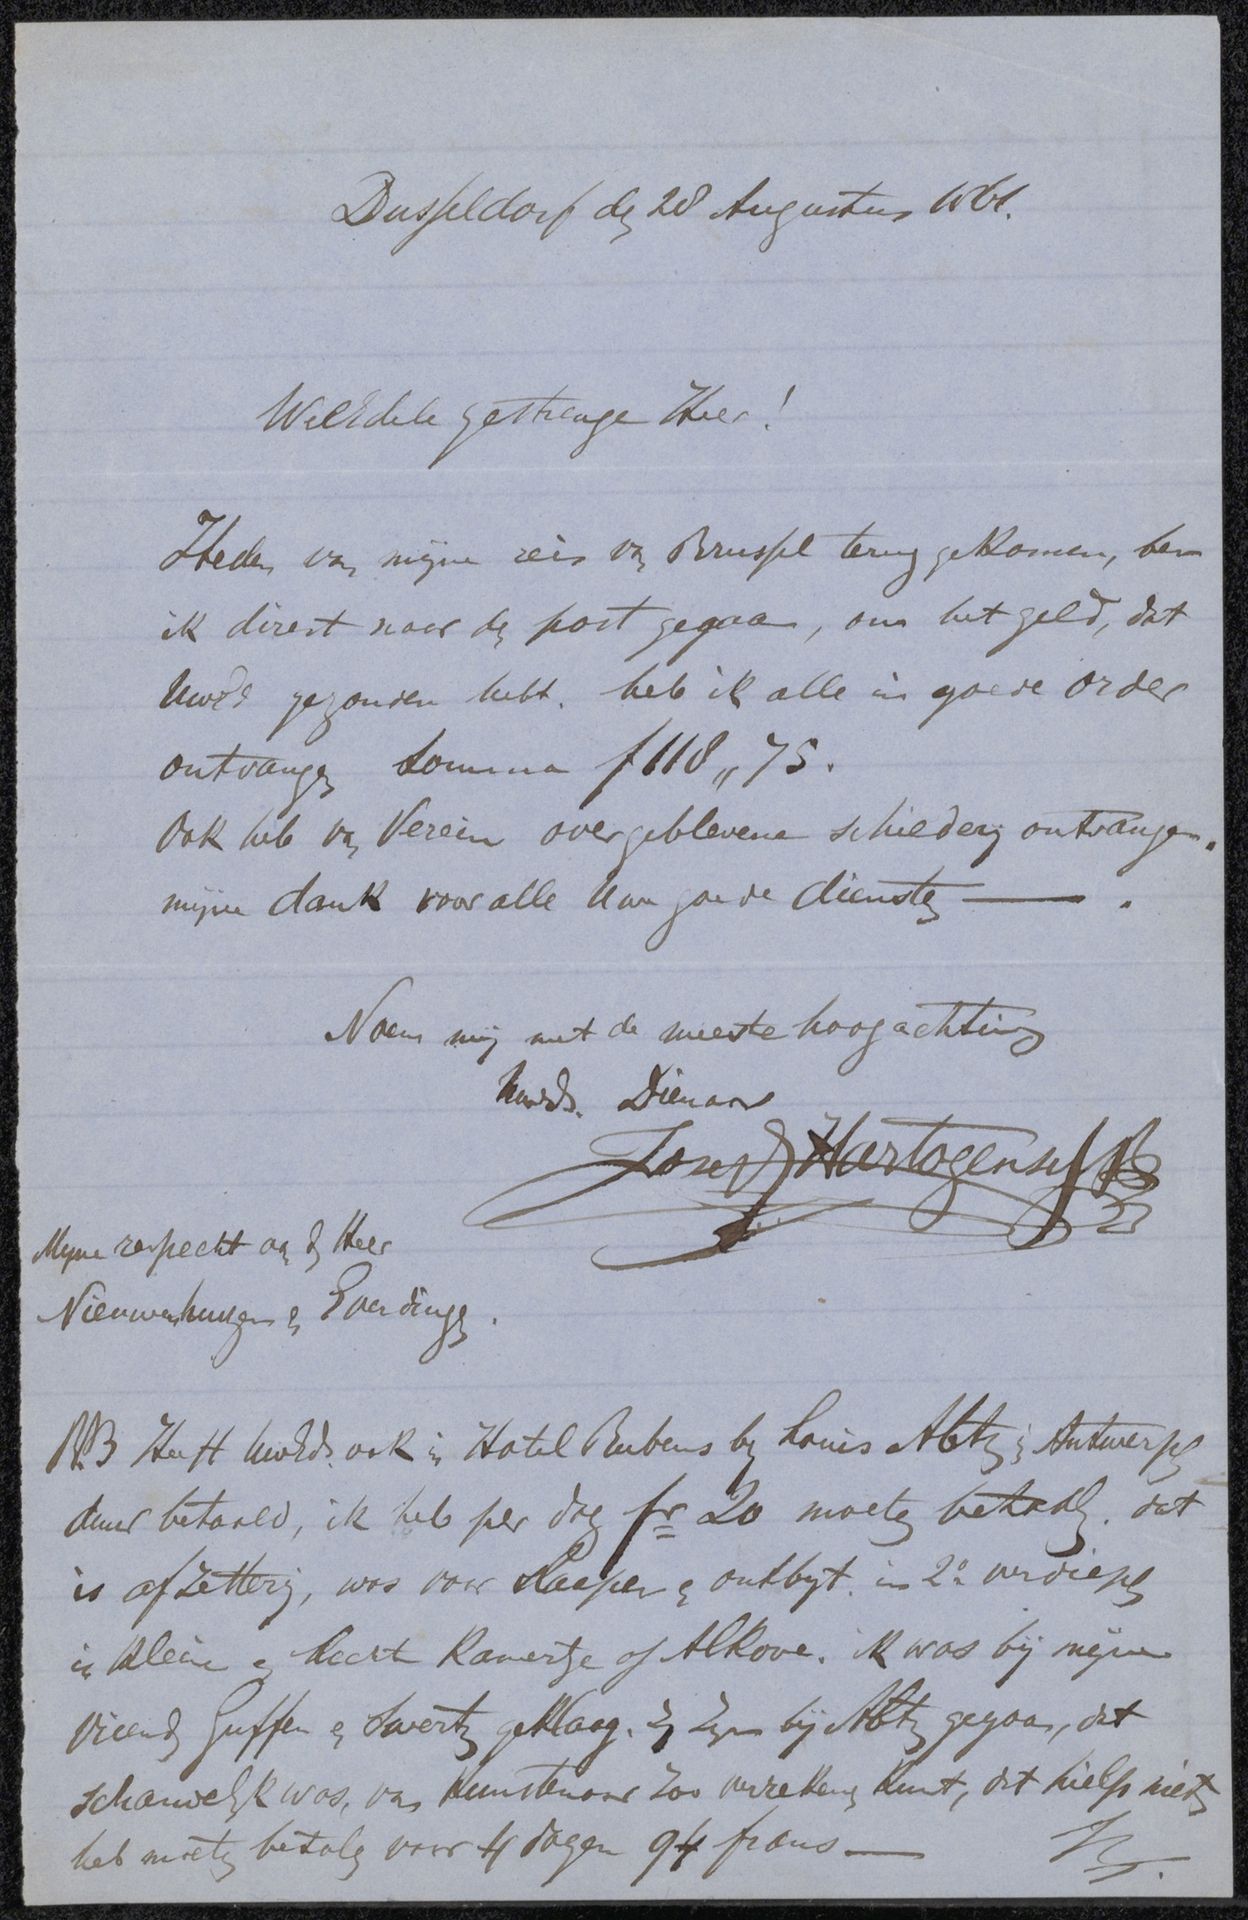 Dusseldorf den 28 Augustus 1861.
WelEdele gestrenge Heer!
Heden van mijne reis van Brussel terug gekomen, ben
ik direct naar den post gegaan, om het geld, dat
UwEd gezonden hebt. heb ik alle in goede order
ontvangen Somma f 118,,75.
Ook heb van Verein overgeblevene schilderij ontvangen.
mijne dank voor alle Uwe goede diensten — .
Noem mij met de meeste hoogachting
UwEds. Dienaar
Joseph Hartogensis
Myne respecht aan den Heer
Nieuwenhuyzen en Everdingen.
NB Heeft UwEds. ook in Hotel Rubens by Louis in Antwerpen
duur betaald, ik heb per dag fr 20 moeten betaalen. dat
is afzetterij, was voor slaapen en ontbyt. in 2e verdiepen
in klein en slecht kamertje of Alkove. ik was bij mijne
vrienden Guffen en Swerts geklaag. zy zyn bij gegaan, dat
schandelyk was, van kunstenaar zoo kunt, dat hielp niets
heb moeten betalen voor 4 dagen 94 frans —